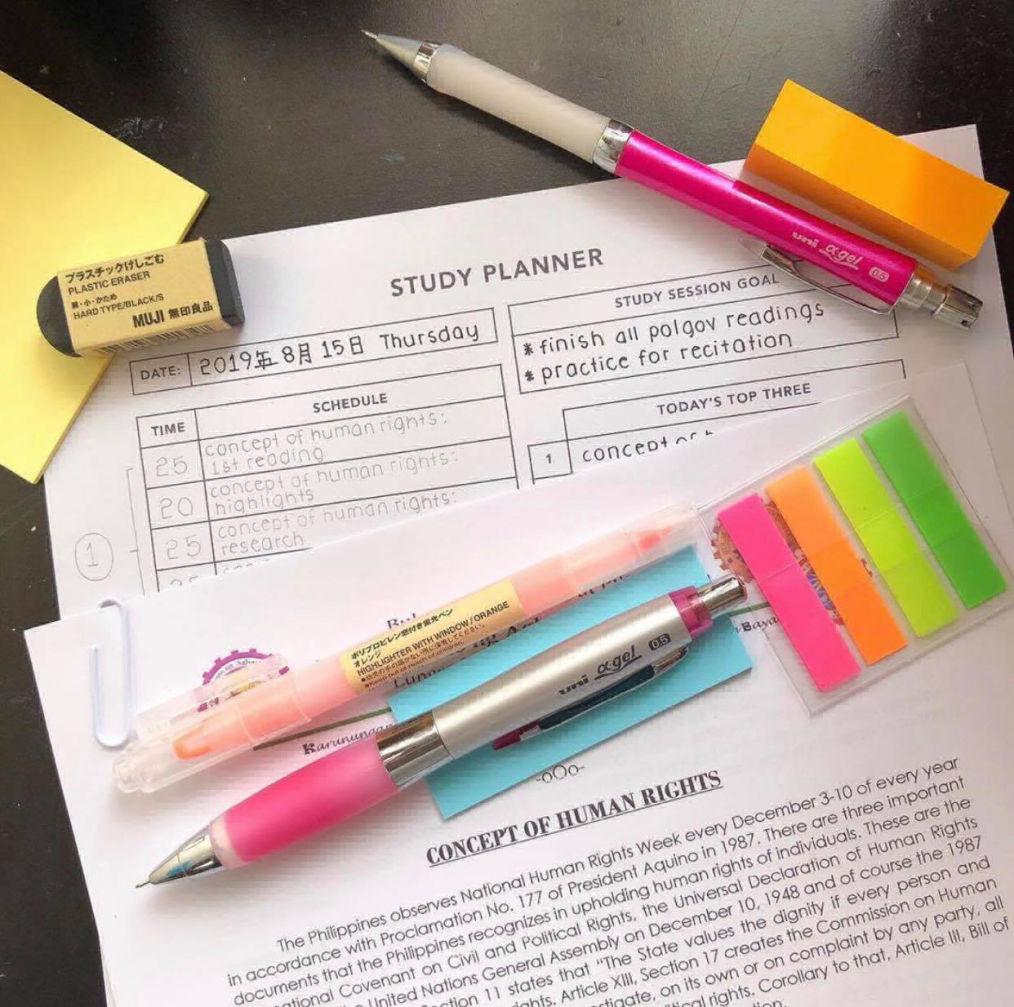 プラスチックけしごむ
PLASTIC ERASER
黒・小・かため
HARD TYPE/BLACK/S
MUJI 無印良品
uni α-gel 0.5
STUDY PLANNER
DATE: 2019年 8月 15日 Thursday
STUDY SESSION GOAL
* finish all polgov readings
* practice for recitation
TIME SCHEDULE
25 concept of human rights:
1st reading
20 concept of human rights:
highlights
25 concept of human rights:
research
1
TODAY'S TOP THREE
1. concept of h
ポリプロピレン窓付き蛍光ペン
オレンジ
HIGHLIGHTER WITH WINDOW/ORANGE
Keep out of reach of children.
uni α-gel 0.5
Karunungan
-oOo-
CONCEPT OF HUMAN RIGHTS
The Philippines observes National Human Rights Week every December 3-10 of every year
in accordance with Proclamation No. 177 of President Aquino in 1987. There are three important
documents that the Philippines recognizes in upholding human rights of individuals. These are the
national Covenant on Civil and Political Rights, the Universal Declaration of Human Rights
United Nations General Assembly on December 10, 1948 and of course the 1987
ction 11 states that "The State values the dignity if every person and
ghts. Article XIII, Section 17 creates the Commission on Human
stigate, on its own or on complaint by any party, all
tical rights. Corollary to that, Article III, Bill of